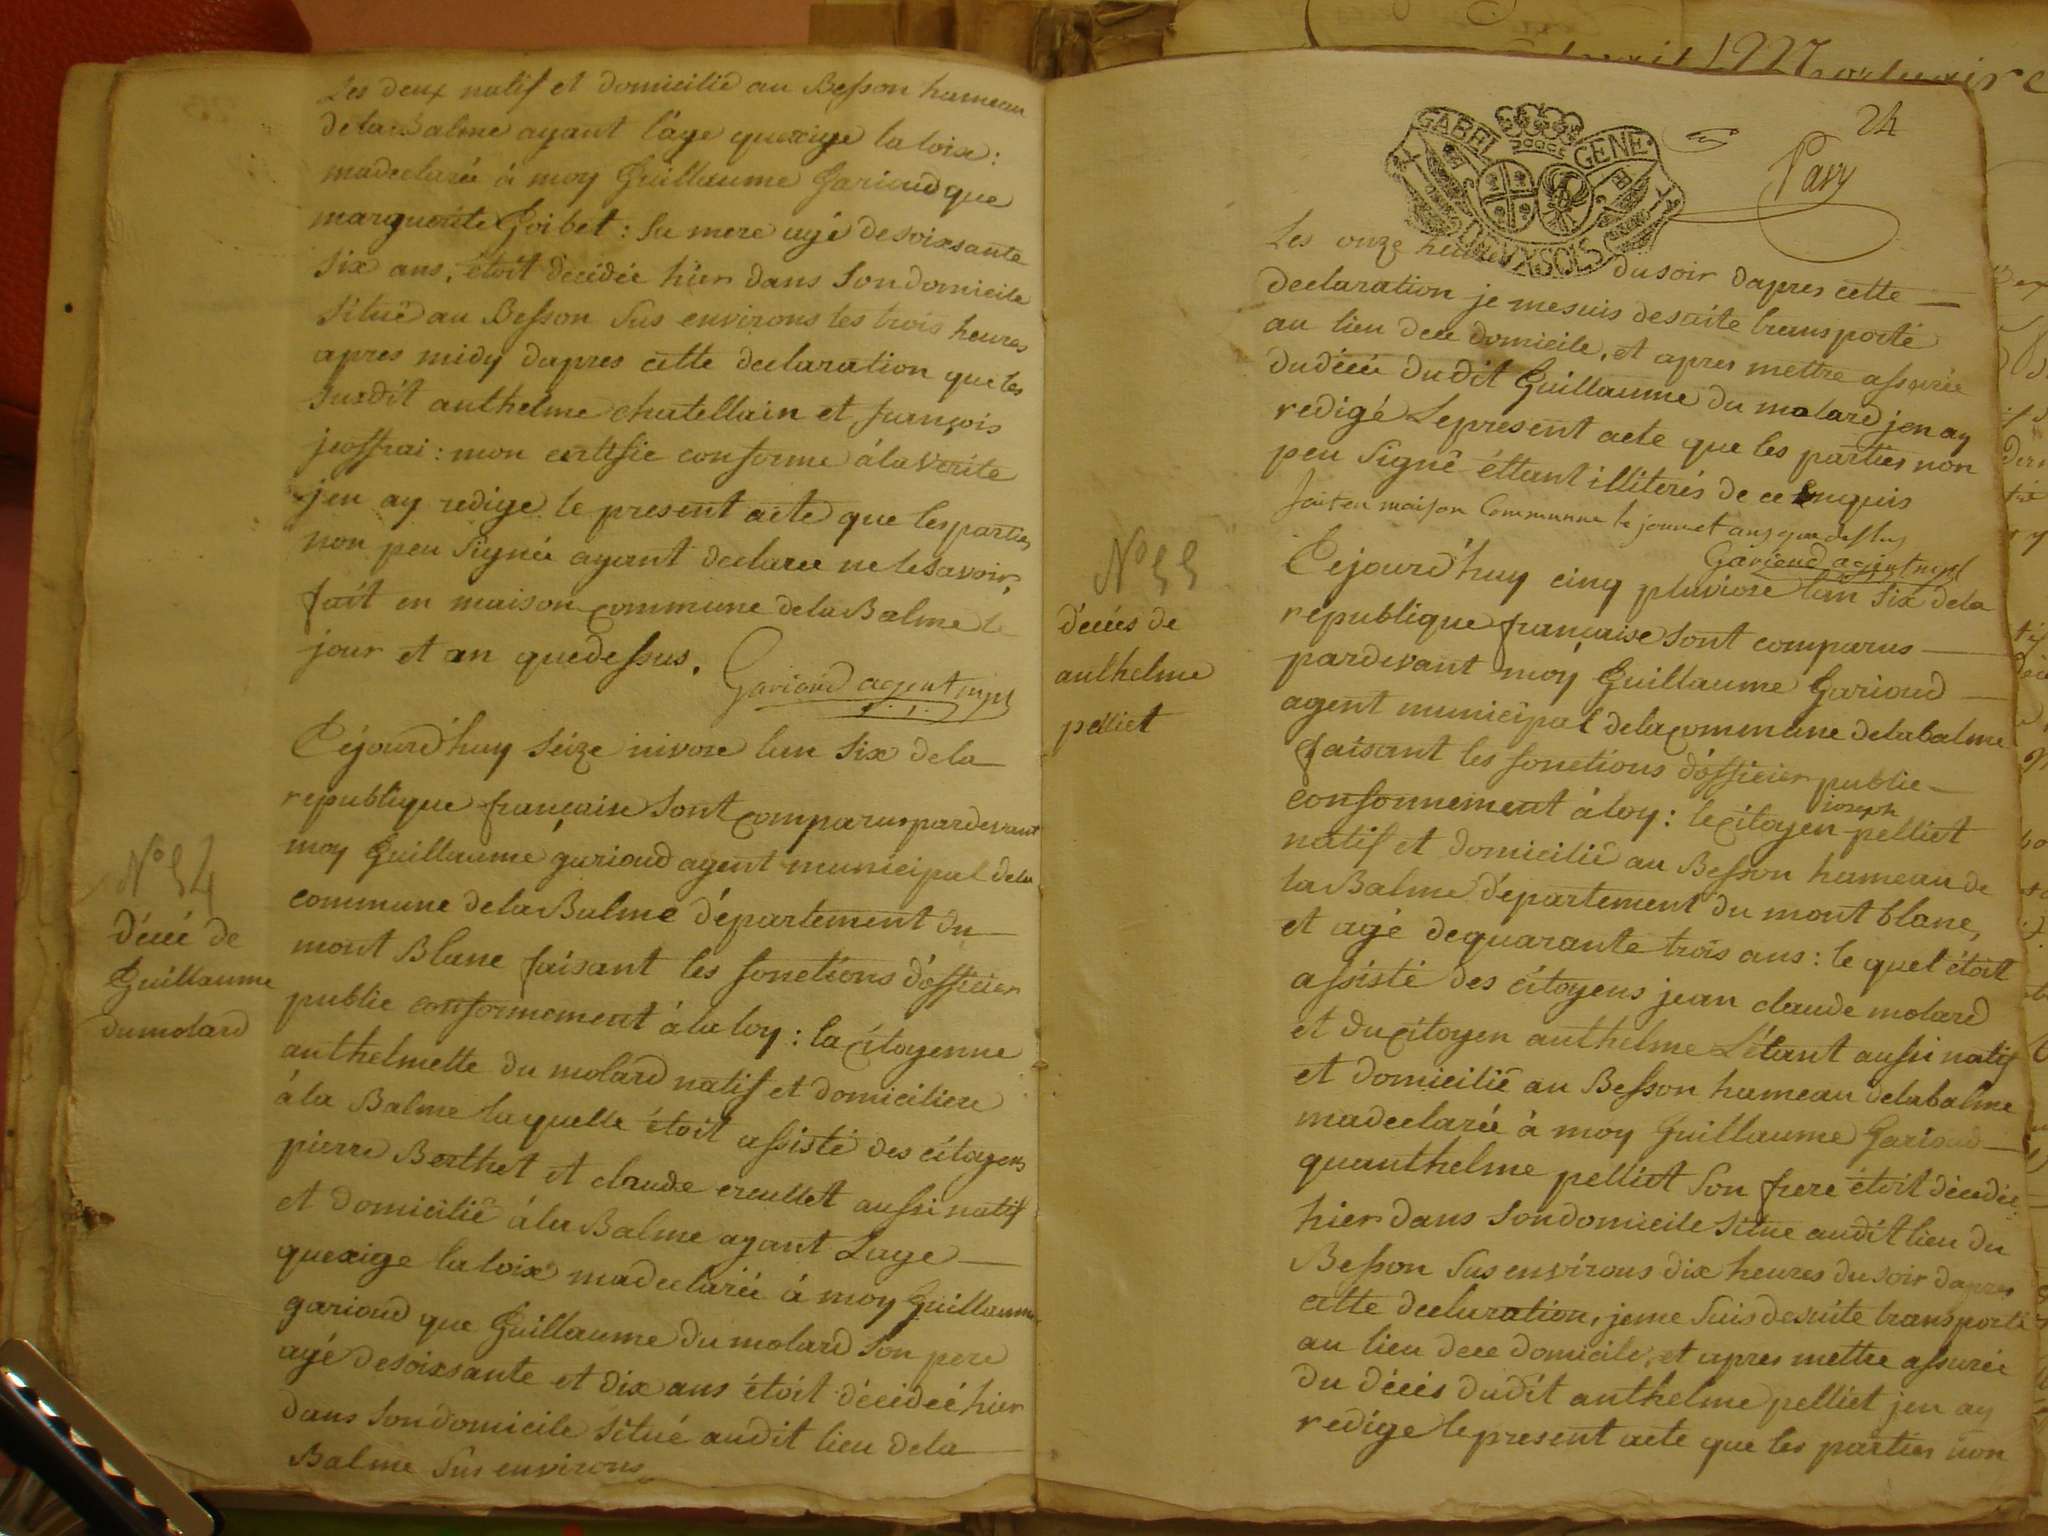 Les deux natif et domicilié au Besson hameau
dela Balme ayant l'âge quexige la loix:
madeclarée à moy Guillaume Garioud que
marguerite Goibet: sa mere agé desoixsante
six ans, étoit décédée hier dans Sondomicile
Situé au Besson Sus environs les trois heures
apres midy dapres cette declaration que les
Susdit anthelme chatellain et françois
jeoffrai: mon certifie conforme à la Verite
jen ay redige le present acte que les parties
non peu Signée ayant declarée ne le Savoir,
fait en maison commune dela Balme le
jour et an quedessus.
Garioud agent mpl
N° 54
décé de
Guillaume
dumolard
Cejourd'huy Séize nivose lan Six dela
republique française Sont comparus pardevant
moy Guillaume garioud agent municipal dela
commune dela Balme département du
mont Blanc faisant les fonctions d'officier
public conformement à la loy: la citoyenne
anthelmette du molard natif et domiciliée
à la Balme laquelle étoit assisté des citoyens
pierre Berthet et claude creullet aussi natif
et domicilié à la Balme ayant Lage
quexige la loix madeclarée à moy Guillaume
garioud que Guillaume du molard Son pere
agé desoixsante et dix ans étoit décédé hier
dans Sondomicile Situé audit lieu dela
Balme Sus environs
1797
24
Pavy
GABEL GENE
SOLS
Les onze heures du soir dapres cette
declaration je mesuis desuite transporté
au lieu dece domicile, et apres mettre assurée
dudécé dudit Guillaume du molard jen ay
redigé Lepresent acte que les parties non
peu Signé éttant illiterés de ce enquis
fait en maison Commune le jour et ans que dessus
Garioud agent mpl
N° 55
décés de
anthelme
pelliet
Cejourd'huy cinq pluviose lan Six dela
republique française Sont comparus
pardevant moy Guillaume Garioud
agent municipal dela commune delabalme
faisant les fonctions d'officier public
conformement à loy: le citoyen joseph pelliet
natif et domicilié au Besson hameau de
la Balme département du mont blanc,
et agé dequarante trois ans: le quel étoit
assisté des citoyens jean claude molard
et du citoyen anthelme Létant aussi natif
et domicilié au Besson hameau delabalme
madeclarée à moy Guillaume Garioud
quanthelme pelliet Son frere étoit décédé
hier dans Sondomicile Situe audit lieu du
Besson Sus environs dix heures du soir dapres
cette declaration, jeme Suis desuite transporté
au lieu dece domicile, et apres mettre assurée
du décés dudit anthelme pelliet jen ay
redige lepresent acte que les parties non